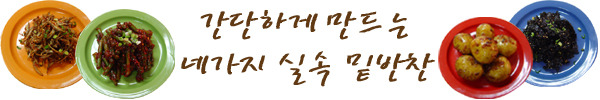 간단하게 만드는
네가지 실속 밑반찬